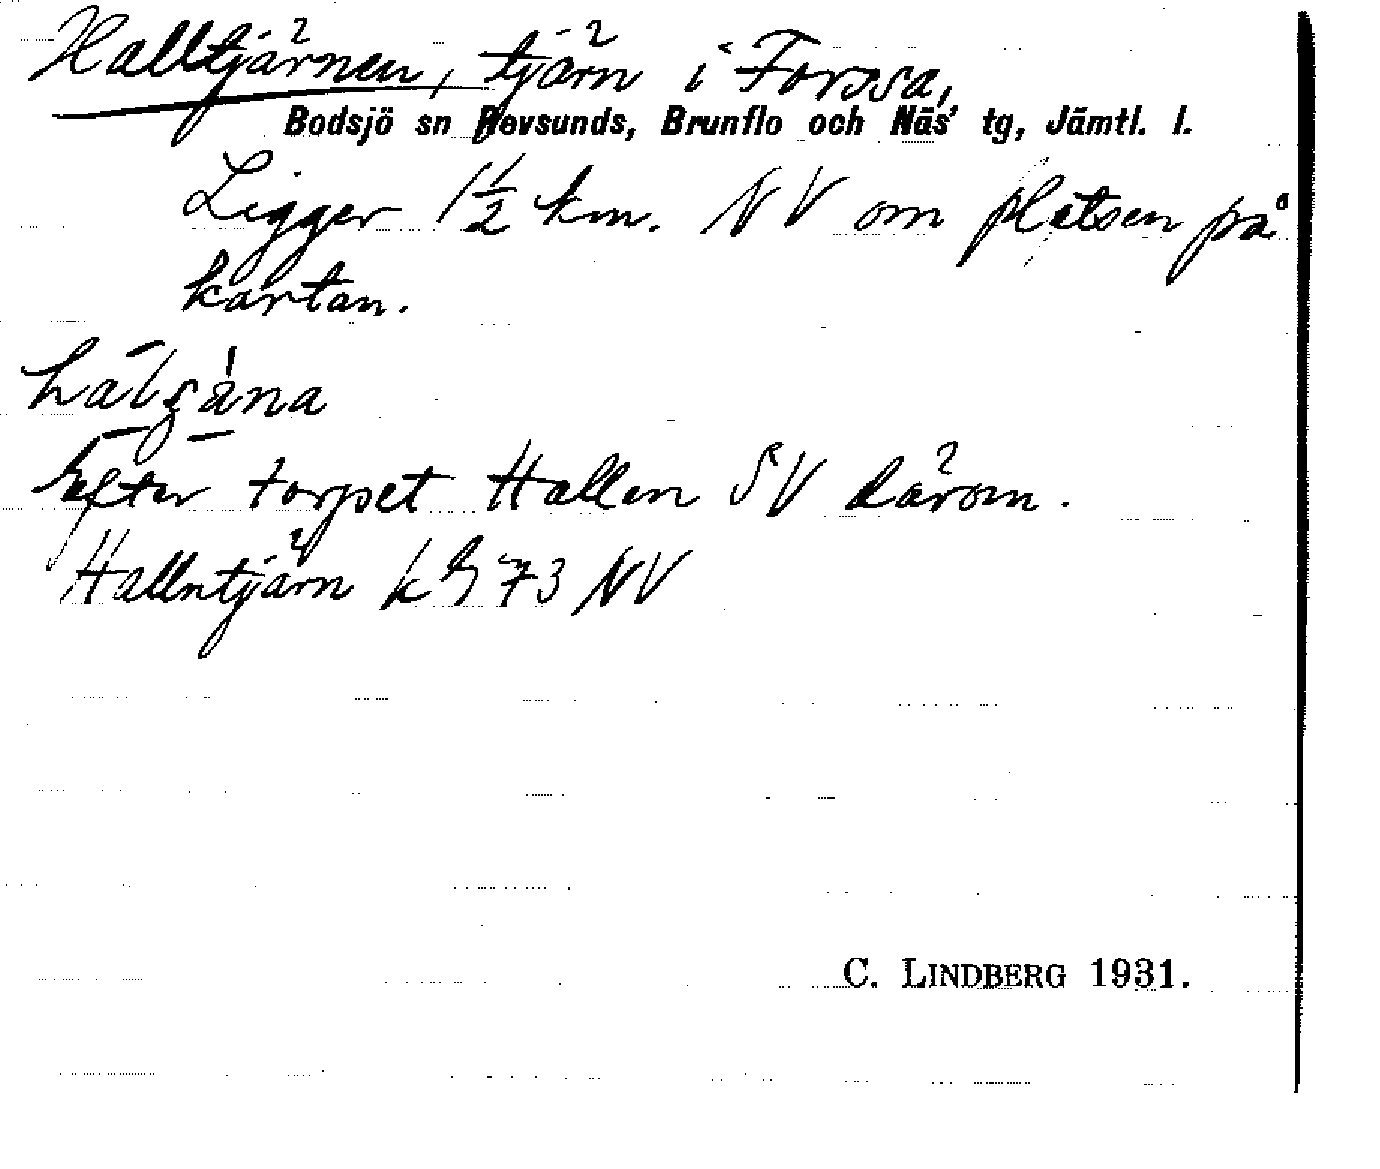 Halltjärnen, tjärn i Forssa,
Bodsjö sn Revsunds, Brunflo och Näs' tg, Jämtl. l.
Ligger 1½ km. NV om platsen på
kartan.
Efter torpet Hallen SV därom.
Hallntjärn k bl 73 NV
C. LINDBERG 1931.